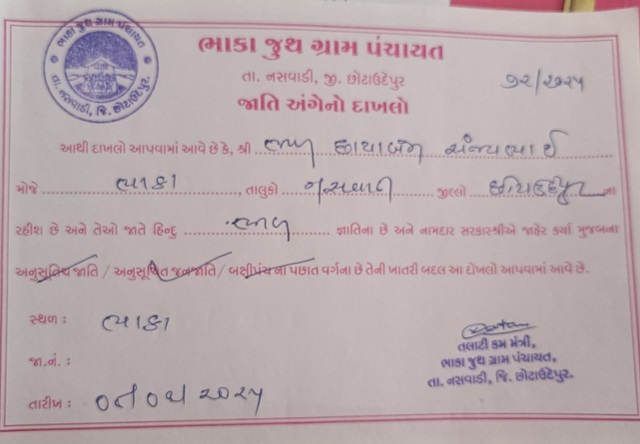 ભાકા જુથ ગ્રામ પંચાયત
તા. નસવાડી, જી. છોટાઉદેપુર
જાતિ અંગેનો દાખલો
ભાકા જુથ ગ્રામ પંચાયત
તા. નસવાડી, જિ. છોટાઉદેપુર.
આથી દાખલો આપવામાં આવે છે કે, શ્રી છાયાબેન સંજયભાઈ
મોજે ભાકા, તાલુકો નસવાડી જીલ્લો છોટાઉદેપુર ના
રહીશ છે અને તેઓ જાતે હિન્દુ જ્ઞાતિના છે અને નામદાર સરકારશ્રીએ જાહેર કર્યા મુજબના
અનુસૂચિત જાતિ / અનુસૂચિત જનજાતિ / બક્ષીપંચના પછાત વર્ગના છે તેની ખાતરી બદલ આ દાખલો આપવામાં આવે છે.
સ્થળ : ભાકા
જા.નં. :
તારીખ :
તલાટી કમ મંત્રી,
ભાકા જુથ ગ્રામ પંચાયત,
તા. નસવાડી, જિ. છોટાઉદેપુર.